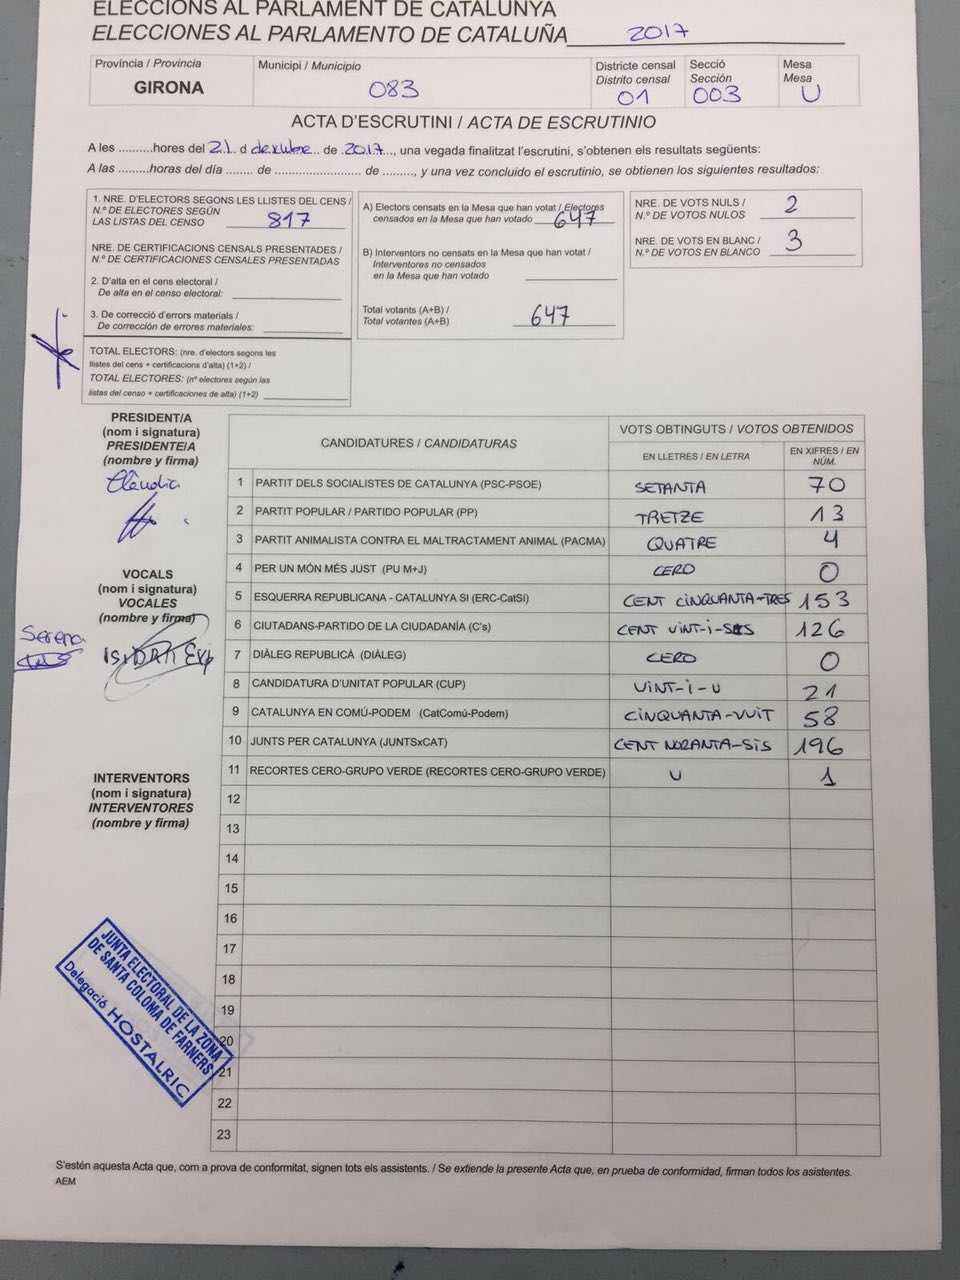 ELECCIONS AL PARLAMENT DE CATALUNYA
ELECCIONES AL PARLAMENTO DE CATALUÑA 2017
Província / Provincia
GIRONA
Municipi / Municipio
083
Districte censal
Distrito censal
01
Secció
Sección
003
Mesa
Mesa
U
ACTA D'ESCRUTINI / ACTA DE ESCRUTINIO
A les .........hores del 21 d desembre de 2017, una vegada finalitzat l'escrutini, s'obtenen els resultats següents:
A las .........horas del día ........ de ......................... de ........., y una vez concluido el escrutinio, se obtienen los siguientes resultados:
1. NRE. D'ELECTORS SEGONS LES LLISTES DEL CENS /
N.º DE ELECTORES SEGÚN
LAS LISTAS DEL CENSO 817
NRE. DE CERTIFICACIONS CENSALS PRESENTADES /
N.º DE CERTIFICACIONES CENSALES PRESENTADAS
2. D'alta en el cens electoral /
De alta en el censo electoral:
3. De correcció d'errors materials /
De corrección de errores materiales:
TOTAL ELECTORS: (nre. d'electors segons les
llistes del cens + certificacions d'alta) (1+2) /
TOTAL ELECTORES: (nº electores según las
listas del censo + certificaciones de alta) (1+2)
A) Electors censats en la Mesa que han votat / Electores
censados en la Mesa que han votado 647
B) Interventors no censats en la Mesa que han votat /
Interventores no censados
en la Mesa que han votado
Total votants (A+B) /
Total votantes (A+B) 647
NRE. DE VOTS NULS /
N.º DE VOTOS NULOS 2
NRE. DE VOTS EN BLANC /
N.º DE VOTOS EN BLANCO 3
PRESIDENT/A
(nom i signatura)
PRESIDENTE/A
(nombre y firma)
Clàudia
VOCALS
(nom i signatura)
VOCALES
(nombre y firma)
Serena
INTERVENTORS
(nom i signatura)
INTERVENTORES
(nombre y firma)
CANDIDATURES / CANDIDATURAS
VOTS OBTINGUTS / VOTOS OBTENIDOS
EN LLETRES / EN LETRA
EN XIFRES / EN NÚM.
1 PARTIT DELS SOCIALISTES DE CATALUNYA (PSC-PSOE) SETANTA 70
2 PARTIT POPULAR / PARTIDO POPULAR (PP) TRETZE 13
3 PARTIT ANIMALISTA CONTRA EL MALTRACTAMENT ANIMAL (PACMA) QUATRE 4
4 PER UN MÓN MÉS JUST (PU M+J) CERO 0
5 ESQUERRA REPUBLICANA - CATALUNYA SI (ERC-CatSí) CENT CINQUANTA-TRES 153
6 CIUTADANS-PARTIDO DE LA CIUDADANÍA (C's) CENT VINT-I-SIS 126
7 DIÀLEG REPUBLICÀ (DIÀLEG) CERO 0
8 CANDIDATURA D'UNITAT POPULAR (CUP) VINT-I-U 21
9 CATALUNYA EN COMÚ-PODEM (CatComú-Podem) CINQUANTA-VUIT 58
10 JUNTS PER CATALUNYA (JUNTSxCAT) CENT NORANTA-SIS 196
11 RECORTES CERO-GRUPO VERDE (RECORTES CERO-GRUPO VERDE) U 1
12
13
14
15
16
17
18
19
20
21
22
23
JUNTA ELECTORAL DE LA ZONA
DE SANTA COLOMA DE FARNERS
Delegació HOSTALRIC
S'estén aquesta Acta que, com a prova de conformitat, signen tots els assistents. / Se extiende la presente Acta que, en prueba de conformidad, firman todos los asistentes.
AEM